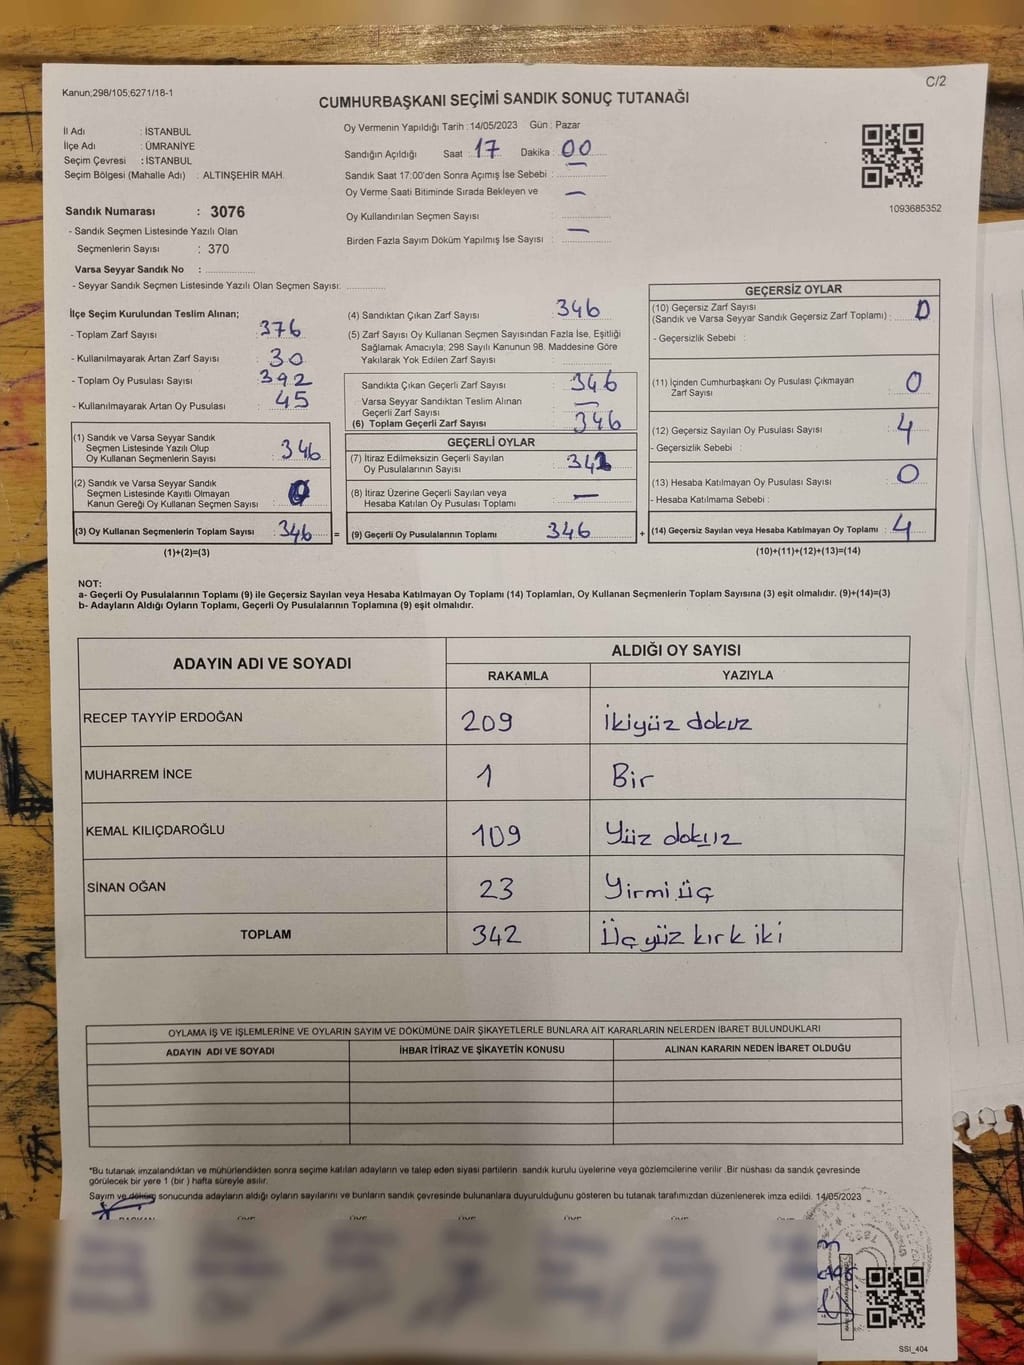 Kanun;298/105;6271/18-1
C/2
CUMHURBAŞKANI SEÇİMİ SANDIK SONUÇ TUTANAĞI
İl Adı : İSTANBUL
İlçe Adı : ÜMRANİYE
Seçim Çevresi : İSTANBUL
Seçim Bölgesi (Mahalle Adı) : ALTINŞEHİR MAH.
Sandık Numarası : 3076
- Sandık Seçmen Listesinde Yazılı Olan
Seçmenlerin Sayısı : 370
Varsa Seyyar Sandık No : ..............
- Seyyar Sandık Seçmen Listesinde Yazılı Olan Seçmen Sayısı: ..............
Oy Vermenin Yapıldığı Tarih :14/05/2023 Gün : Pazar
Sandığın Açıldığı Saat : 17 Dakika : 00
Sandık Saat 17:00'den Sonra Açımış İse Sebebi : ..............
Oy Verme Saati Bitiminde Sırada Bekleyen ve —
Oy Kullandırılan Seçmen Sayısı : ..............
Birden Fazla Sayım Döküm Yapılmış İse Sayısı : —
1093685352
İlçe Seçim Kurulundan Teslim Alınan;
- Toplam Zarf Sayısı : 376
- Kullanılmayarak Artan Zarf Sayısı : 30
- Toplam Oy Pusulası Sayısı : 392
- Kullanılmayarak Artan Oy Pusulası : 45
(1) Sandık ve Varsa Seyyar Sandık
Seçmen Listesinde Yazılı Olup
Oy Kullanan Seçmenlerin Sayısı : 346
(2) Sandık ve Varsa Seyyar Sandık
Seçmen Listesinde Kayıtlı Olmayan
Kanun Gereği Oy Kullanan Seçmen Sayısı :
(3) Oy Kullanan Seçmenlerin Toplam Sayısı : 346 =
(1)+(2)=(3)
(4) Sandıktan Çıkan Zarf Sayısı : 346
(5) Zarf Sayısı Oy Kullanan Seçmen Sayısından Fazla İse, Eşitliği
Sağlamak Amacıyla; 298 Sayılı Kanunun 98. Maddesine Göre
Yakılarak Yok Edilen Zarf Sayısı : ..............
Sandıkta Çıkan Geçerli Zarf Sayısı : 346
Varsa Seyyar Sandıktan Teslim Alınan
Geçerli Zarf Sayısı : —
(6) Toplam Geçerli Zarf Sayısı : 346
GEÇERLİ OYLAR
(7) İtiraz Edilmeksizin Geçerli Sayılan
Oy Pusulalarının Sayısı : 342
(8) İtiraz Üzerine Geçerli Sayılan veya
Hesaba Katılan Oy Pusulası Toplamı : —
(9) Geçerli Oy Pusulalarının Toplamı : 346 +
GEÇERSİZ OYLAR
(10) Geçersiz Zarf Sayısı
(Sandık ve Varsa Seyyar Sandık Geçersiz Zarf Toplamı) : 0
- Geçersizlik Sebebi :
(11) İçinden Cumhurbaşkanı Oy Pusulası Çıkmayan
Zarf Sayısı : 0
(12) Geçersiz Sayılan Oy Pusulası Sayısı : 4
- Geçersizlik Sebebi :
(13) Hesaba Katılmayan Oy Pusulası Sayısı : 0
- Hesaba Katılmama Sebebi :
(14) Geçersiz Sayılan veya Hesaba Katılmayan Oy Toplamı : 4
(10)+(11)+(12)+(13)=(14)
NOT:
a- Geçerli Oy Pusulalarının Toplamı (9) ile Geçersiz Sayılan veya Hesaba Katılmayan Oy Toplamı (14) Toplamları, Oy Kullanan Seçmenlerin Toplam Sayısına (3) eşit olmalıdır. (9)+(14)=(3)
b- Adayların Aldığı Oyların Toplamı, Geçerli Oy Pusulalarının Toplamına (9) eşit olmalıdır.
ADAYIN ADI VE SOYADI
ALDIĞI OY SAYISI
RAKAMLA YAZIYLA
RECEP TAYYİP ERDOĞAN 209 İkiyüz dokuz
MUHARREM İNCE 1 Bir
KEMAL KILIÇDAROĞLU 109 Yüz dokuz
SİNAN OĞAN 23 Yirmi üç
TOPLAM 342 Üç yüz kırk iki
OYLAMA İŞ VE İŞLEMLERİNE VE OYLARIN SAYIM VE DÖKÜMÜNE DAİR ŞİKAYETLERLE BUNLARA AİT KARARLARIN NELERDEN İBARET BULUNDUKLARI
ADAYIN ADI VE SOYADI İHBAR İTİRAZ VE ŞİKAYETİN KONUSU ALINAN KARARIN NEDEN İBARET OLDUĞU
*Bu tutanak imzalandıktan ve mühürlendikten sonra seçime katılan adayların ve talep eden siyasi partilerin sandık kurulu üyelerine veya gözlemcilerine verilir .Bir nüshası da sandık çevresinde
görülecek bir yere 1 (bir ) hafta süreyle asılır.
Sayım ve döküm sonucunda adayların aldığı oyların sayılarını ve bunların sandık çevresinde bulunanlara duyurulduğunu gösteren bu tutanak tarafımızdan düzenlenerek imza edildi. 14/05/2023
SSI_404